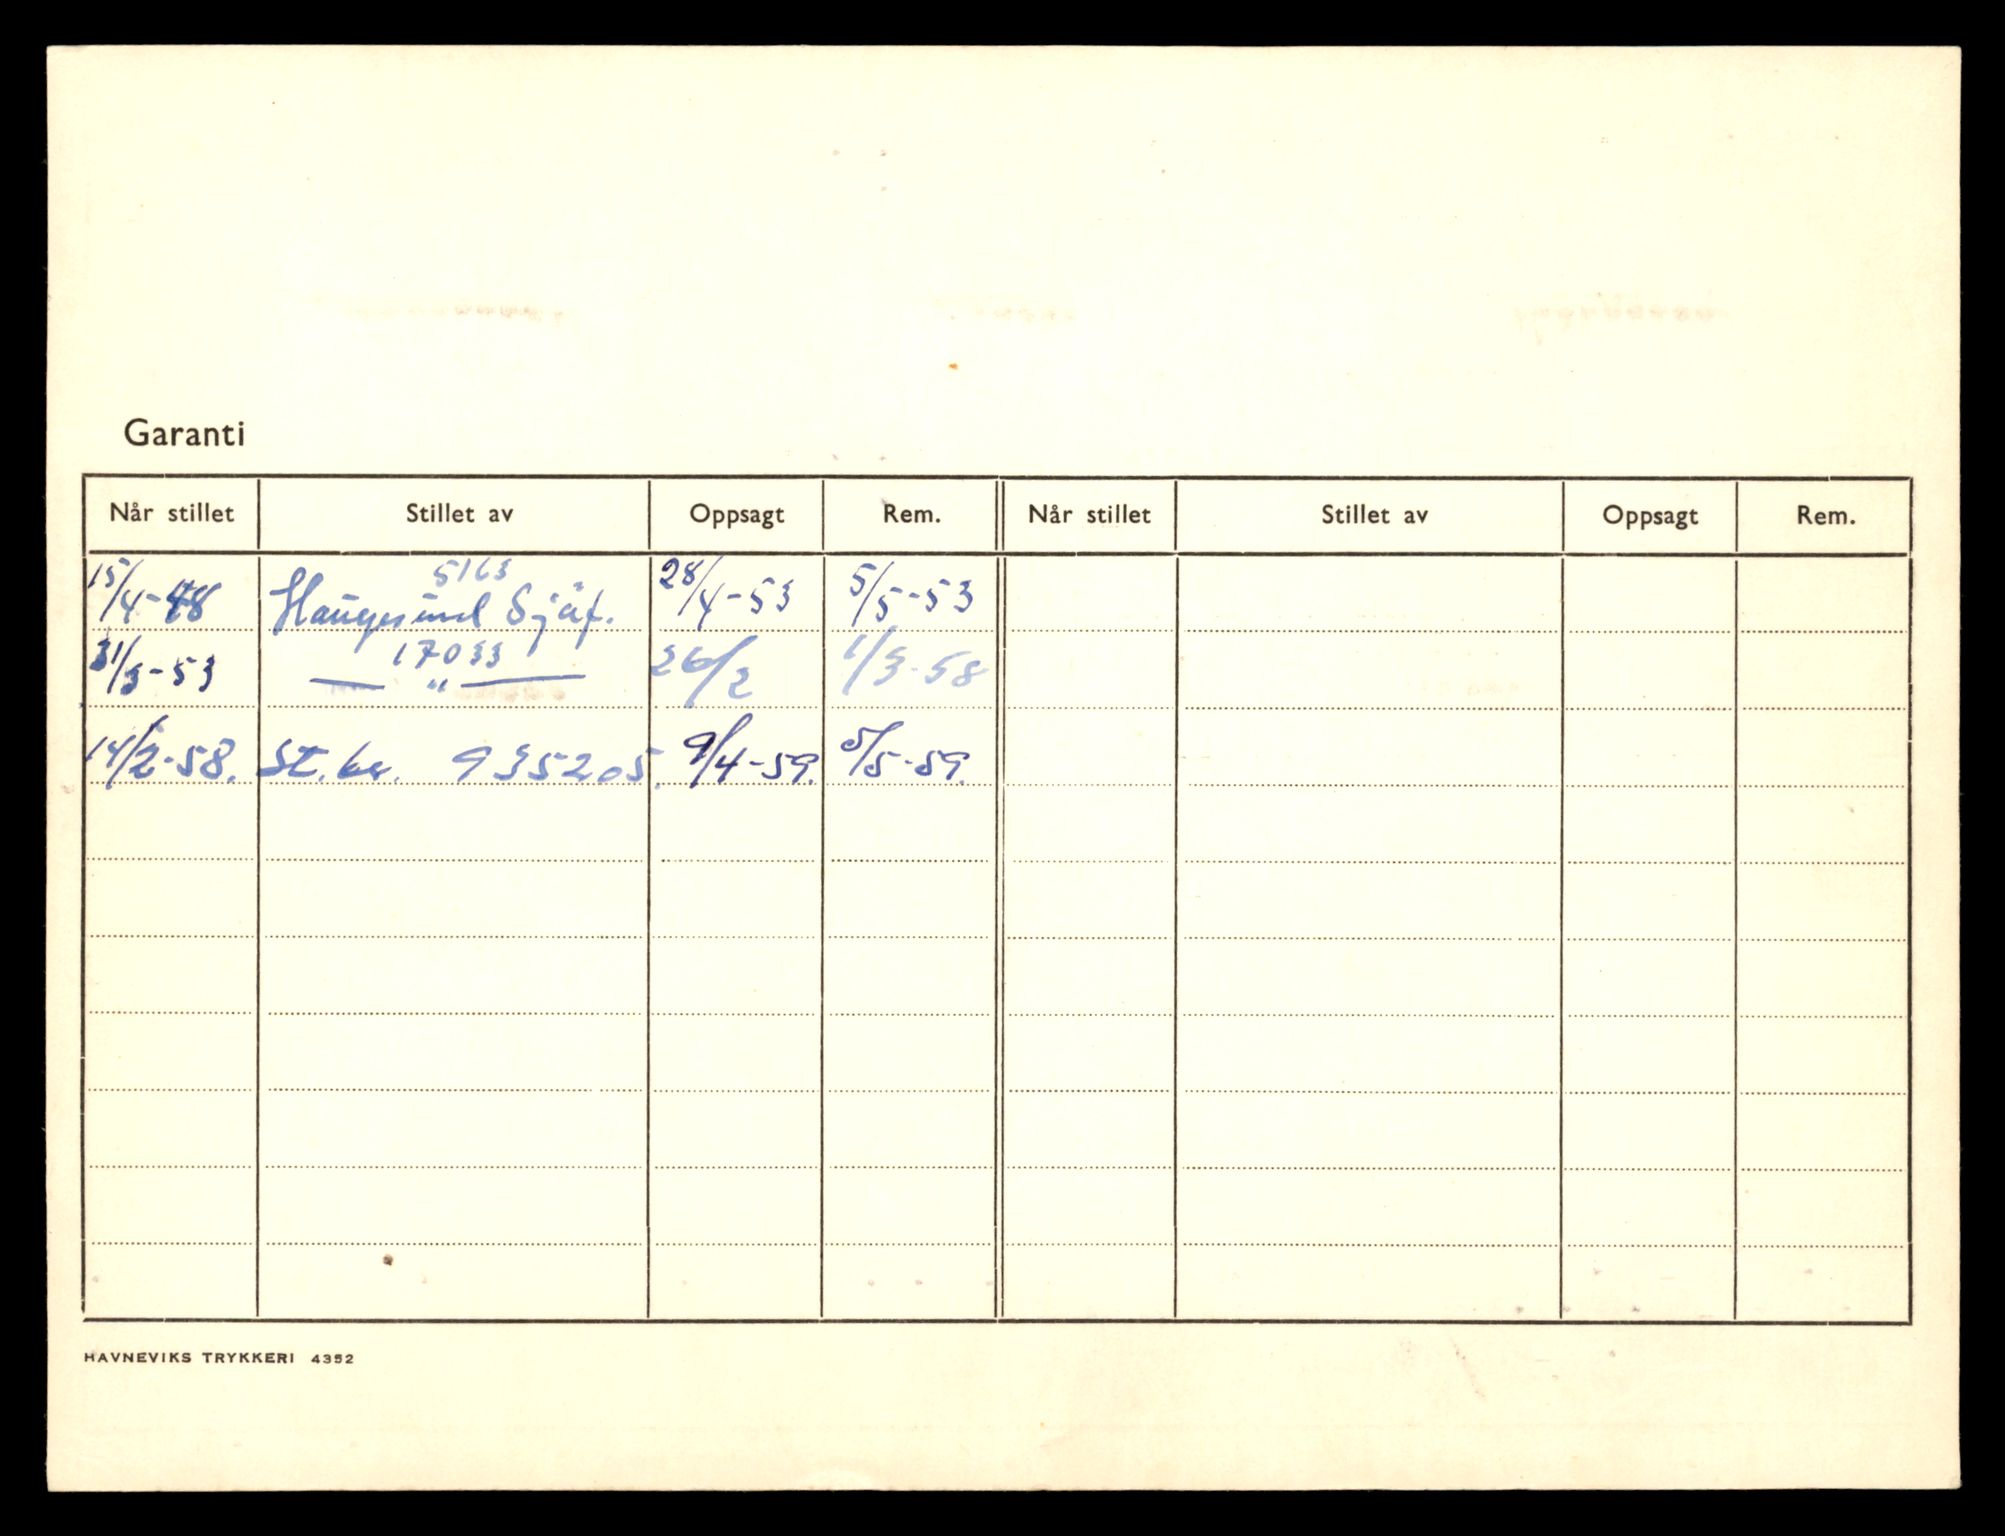 Garanti
Når stillet Stillet av Oppsagt Rem. Når stillet Stillet av Oppsagt Rem.
15/4-48 5163 28/4-53 5/5-53
Haugesund Sjøf.
31/3-53 17033 26/2 1/3-58
— " —
14/2-58. St.br. 935205. 9/4-59. 5/5-59.
HAVNEVIKS TRYKKERI 4352